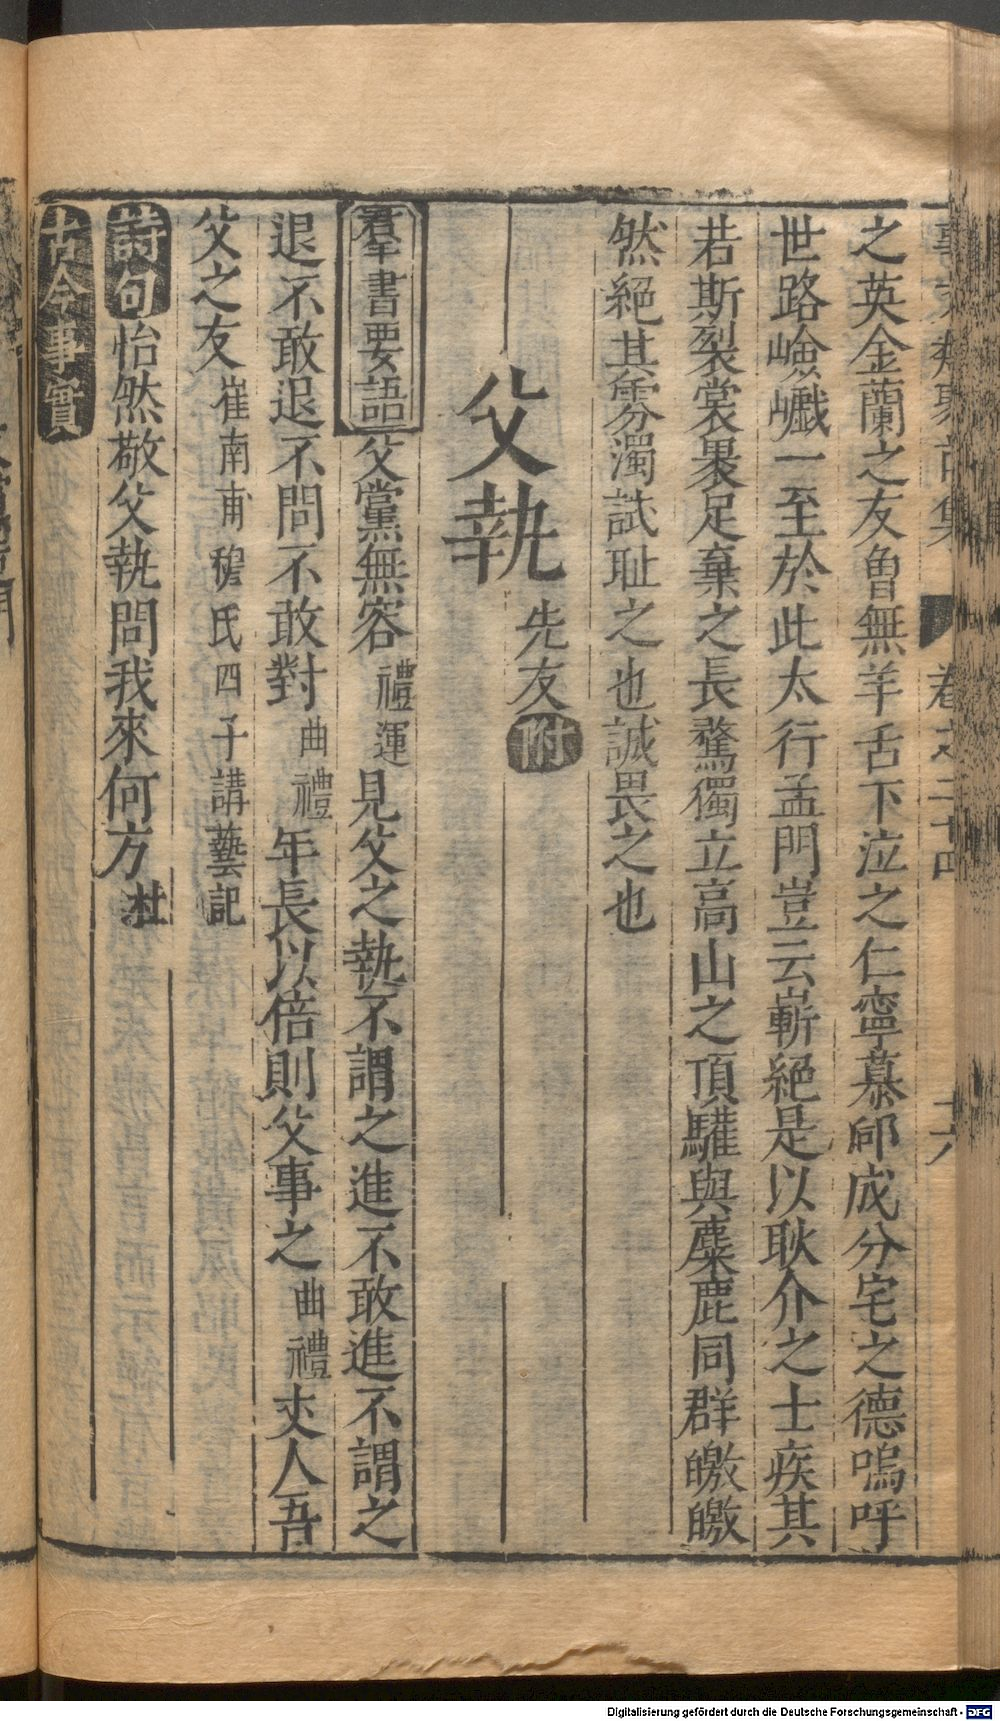 之英金蘭之友魯無羊舌下泣之仁寧慕郈成分宅之德嗚呼
世路嶮巇一至於此太行孟門豈云嶄絕是以耿介之士疾其
若斯裂裳裹足棄之長騖獨立高山之頂驩與麋鹿同群皦皦
然絕其雰濁誠耻之也誠畏之也
父執 先友附
羣書要語 父黨無容 禮運 見父之執不謂之進不敢進不謂之
退不敢退不問不敢對 曲禮 年長以倍則父事之 曲禮 夫人吾
父之友 崔南甫 穆氏四子講藝記
詩句 怡然敬父執問我來何方 杜
古今事實
卷之二十四
十六
Digitalisierung gefördert durch die Deutsche Forschungsgemeinschaft - DFG